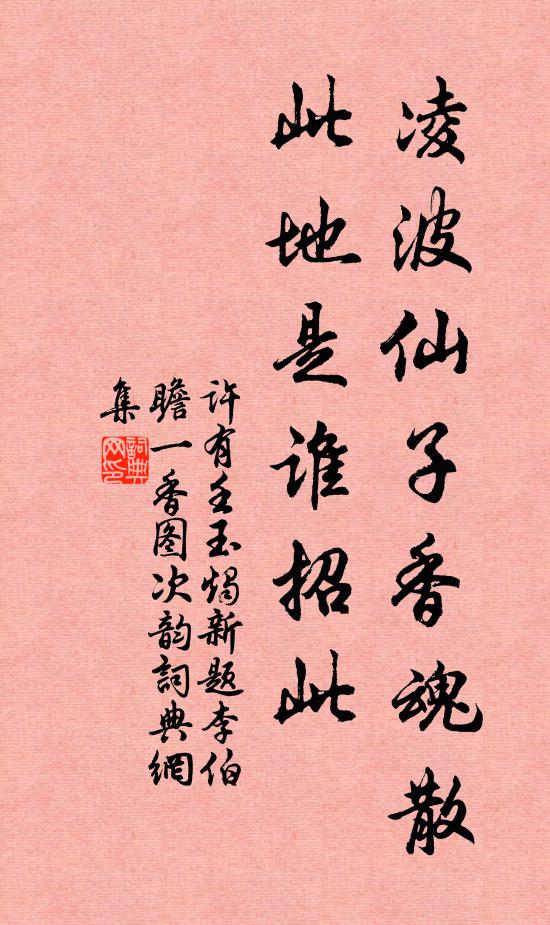 凌波仙子香魂散
此地是谁招此
许有壬玉烛新题李伯
瞻一香图次韵詞典網
集
詞典网印